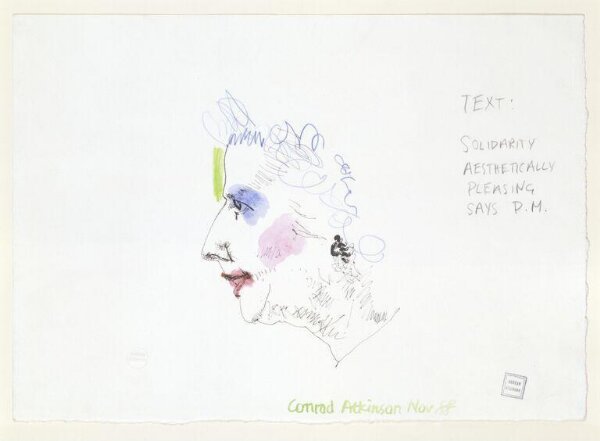 TEXT:
SOLIDARITY
AESTHETICALLY
PLEASING
SAYS P.M.
Conrad Atkinson Nov